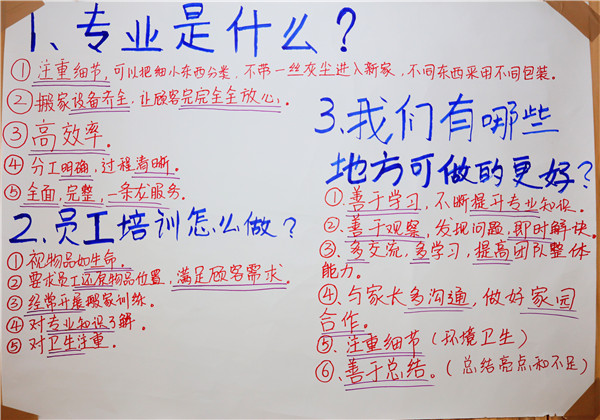 1、专业是什么？
①注重细节，可以把细小东西分类，不带一丝灰尘进入新家，不同东西采用不同包装。
②搬家设备齐全，让顾客完完全全放心。
③高效率。
④分工明确，过程清晰。
⑤全面，完整，一条龙服务。
2、员工培训怎么做？
①视物品如生命。
②要求员工还原物品位置，满足顾客需求。
③经常开展搬家训练。
④对专业知识了解。
⑤对卫生注重。
3、我们有哪些
地方可做的更好？
①善于学习，不断提升专业知识。
②善于观察，发现问题，即时解快。
③多交流，多学习，提高团队整体
能力。
④、与家长多沟通，做好家园
合作。
⑤、注重细节（环境卫生）
⑥、善于总结。（总结亮点和不足）